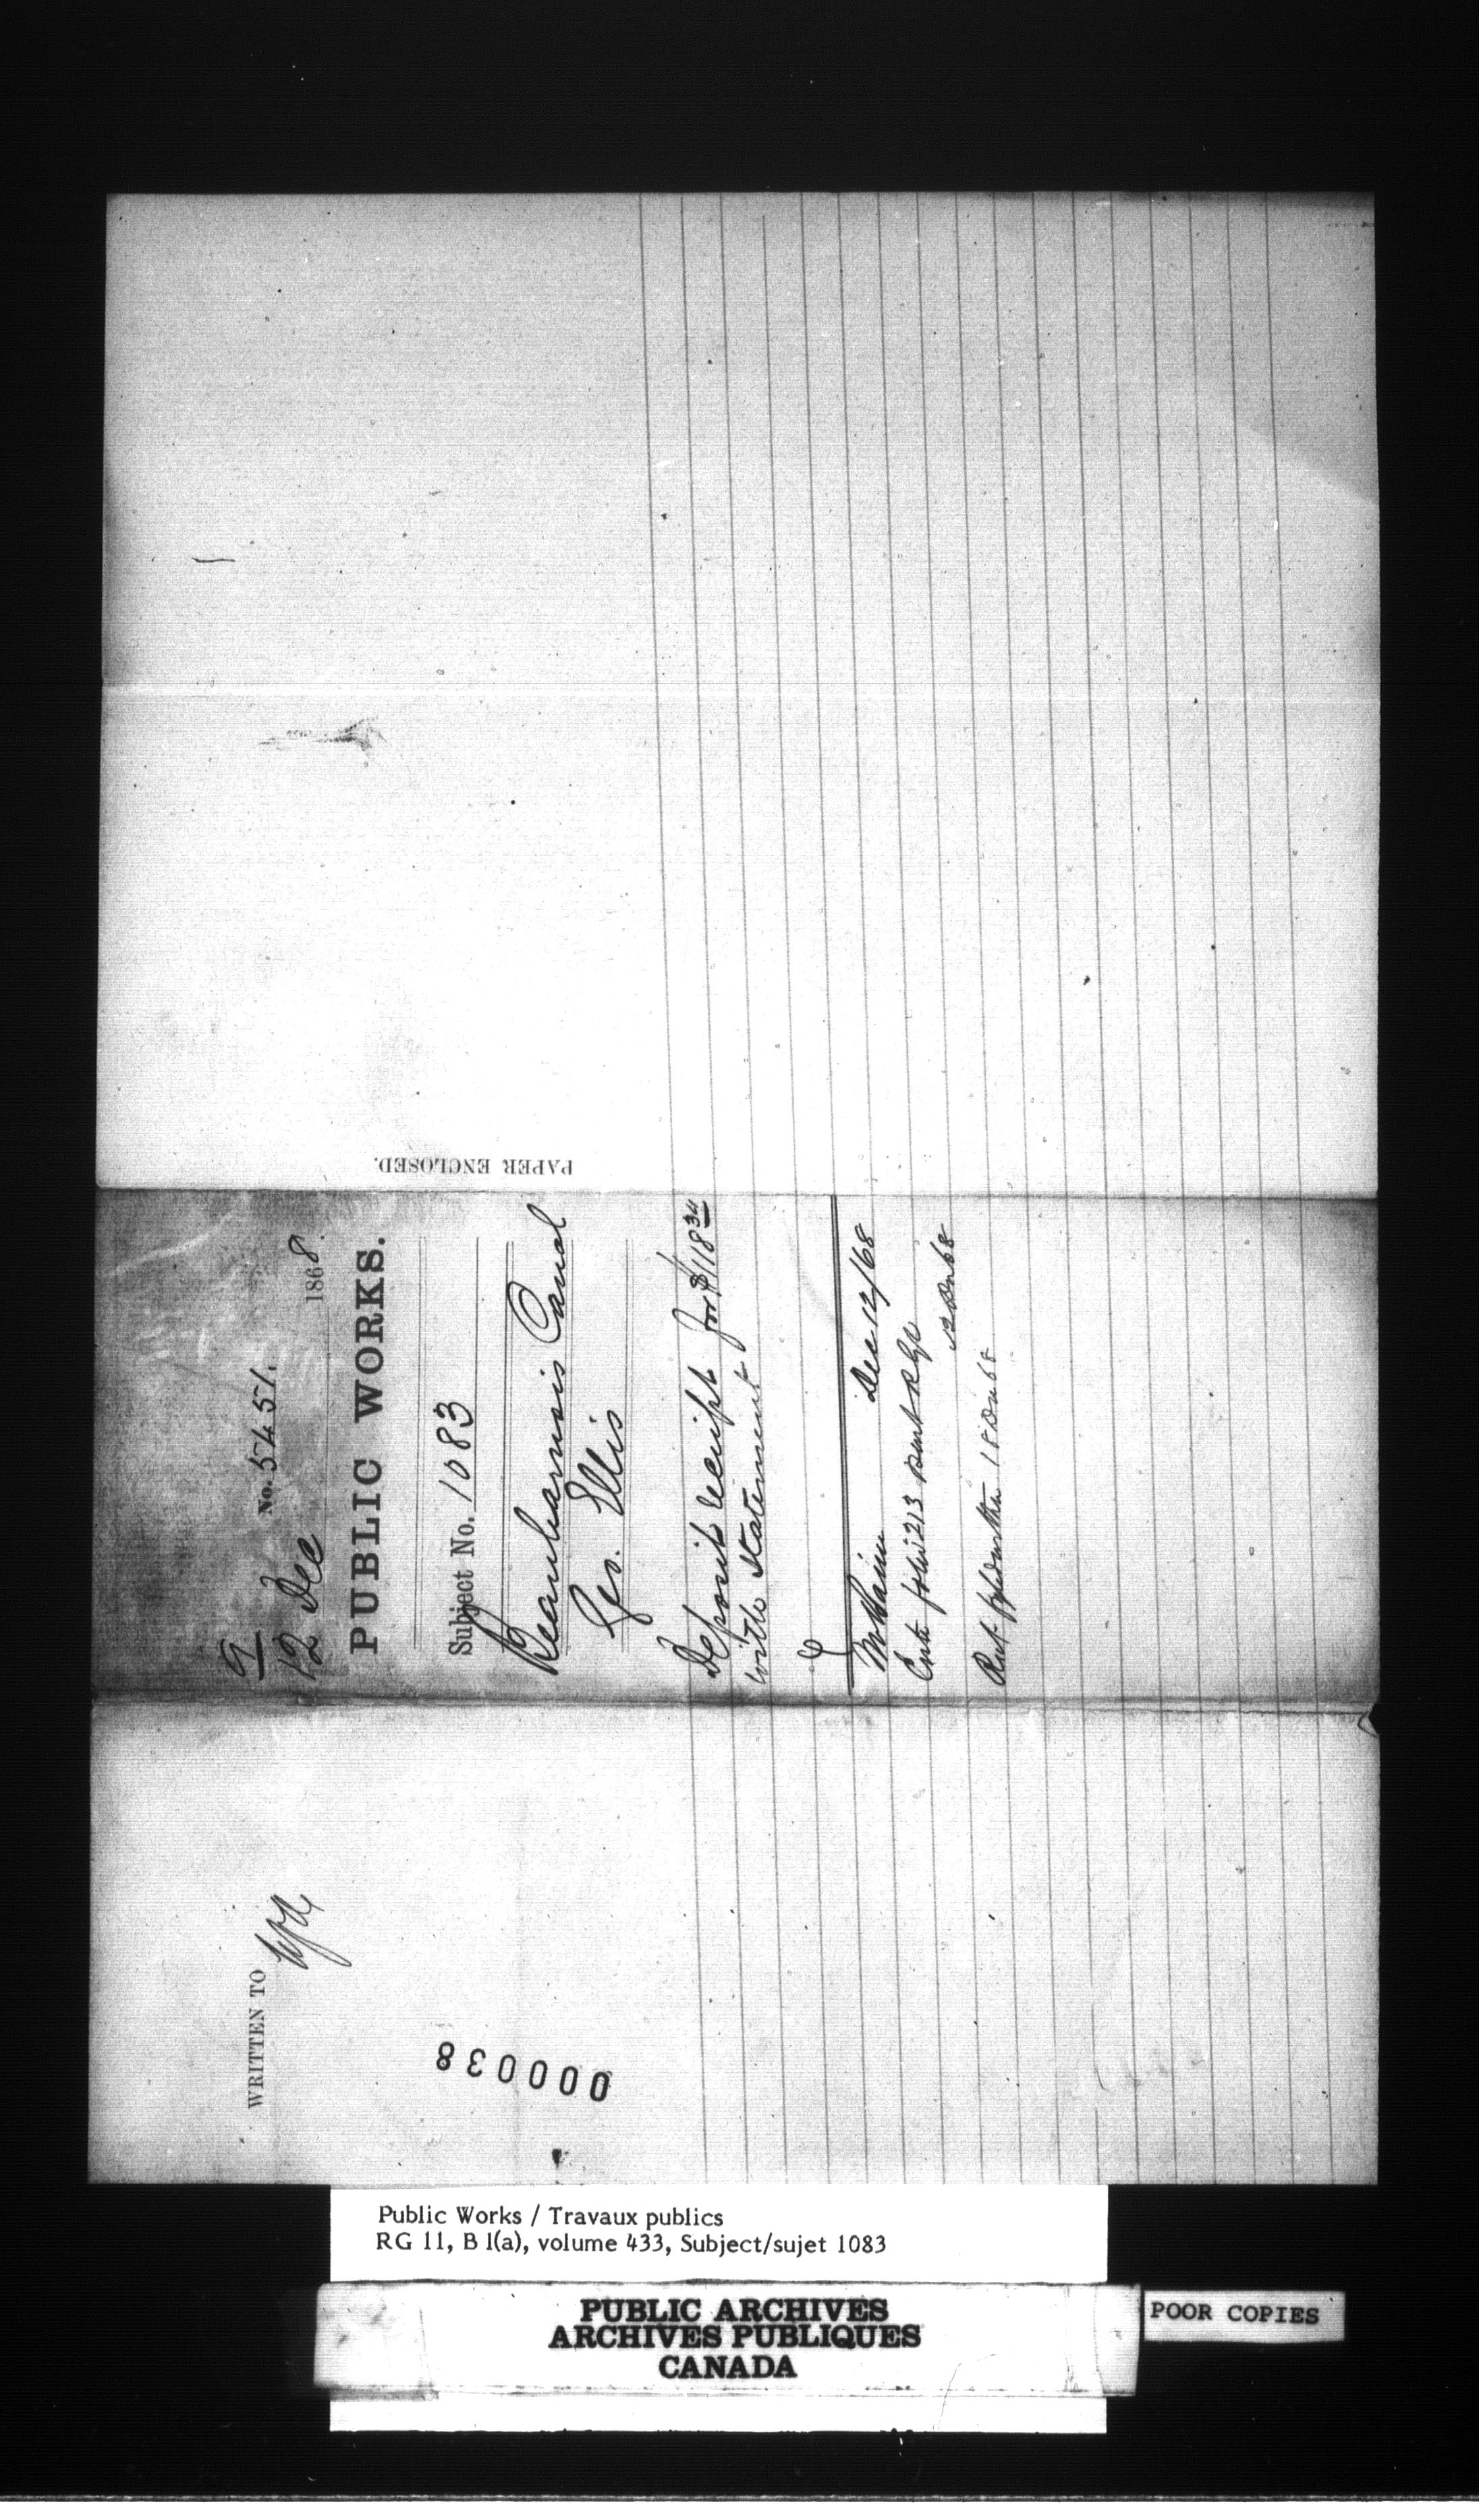 9
No. 5451.
12 Dec 1868.
PUBLIC WORKS.
Subject No. 1083
Beauharnois Canal
Geo. Ellis
Deposit receipt for $118 34
with Statement
Dec 12/68
12 Dec 68
18 Dec 68
PAPER ENCLOSED.
WRITTEN TO
000038
Public Works / Travaux publics
RG 11, B 1(a), volume 433, Subject/sujet 1083
PUBLIC ARCHIVES
ARCHIVES PUBLIQUES
CANADA
POOR COPIES